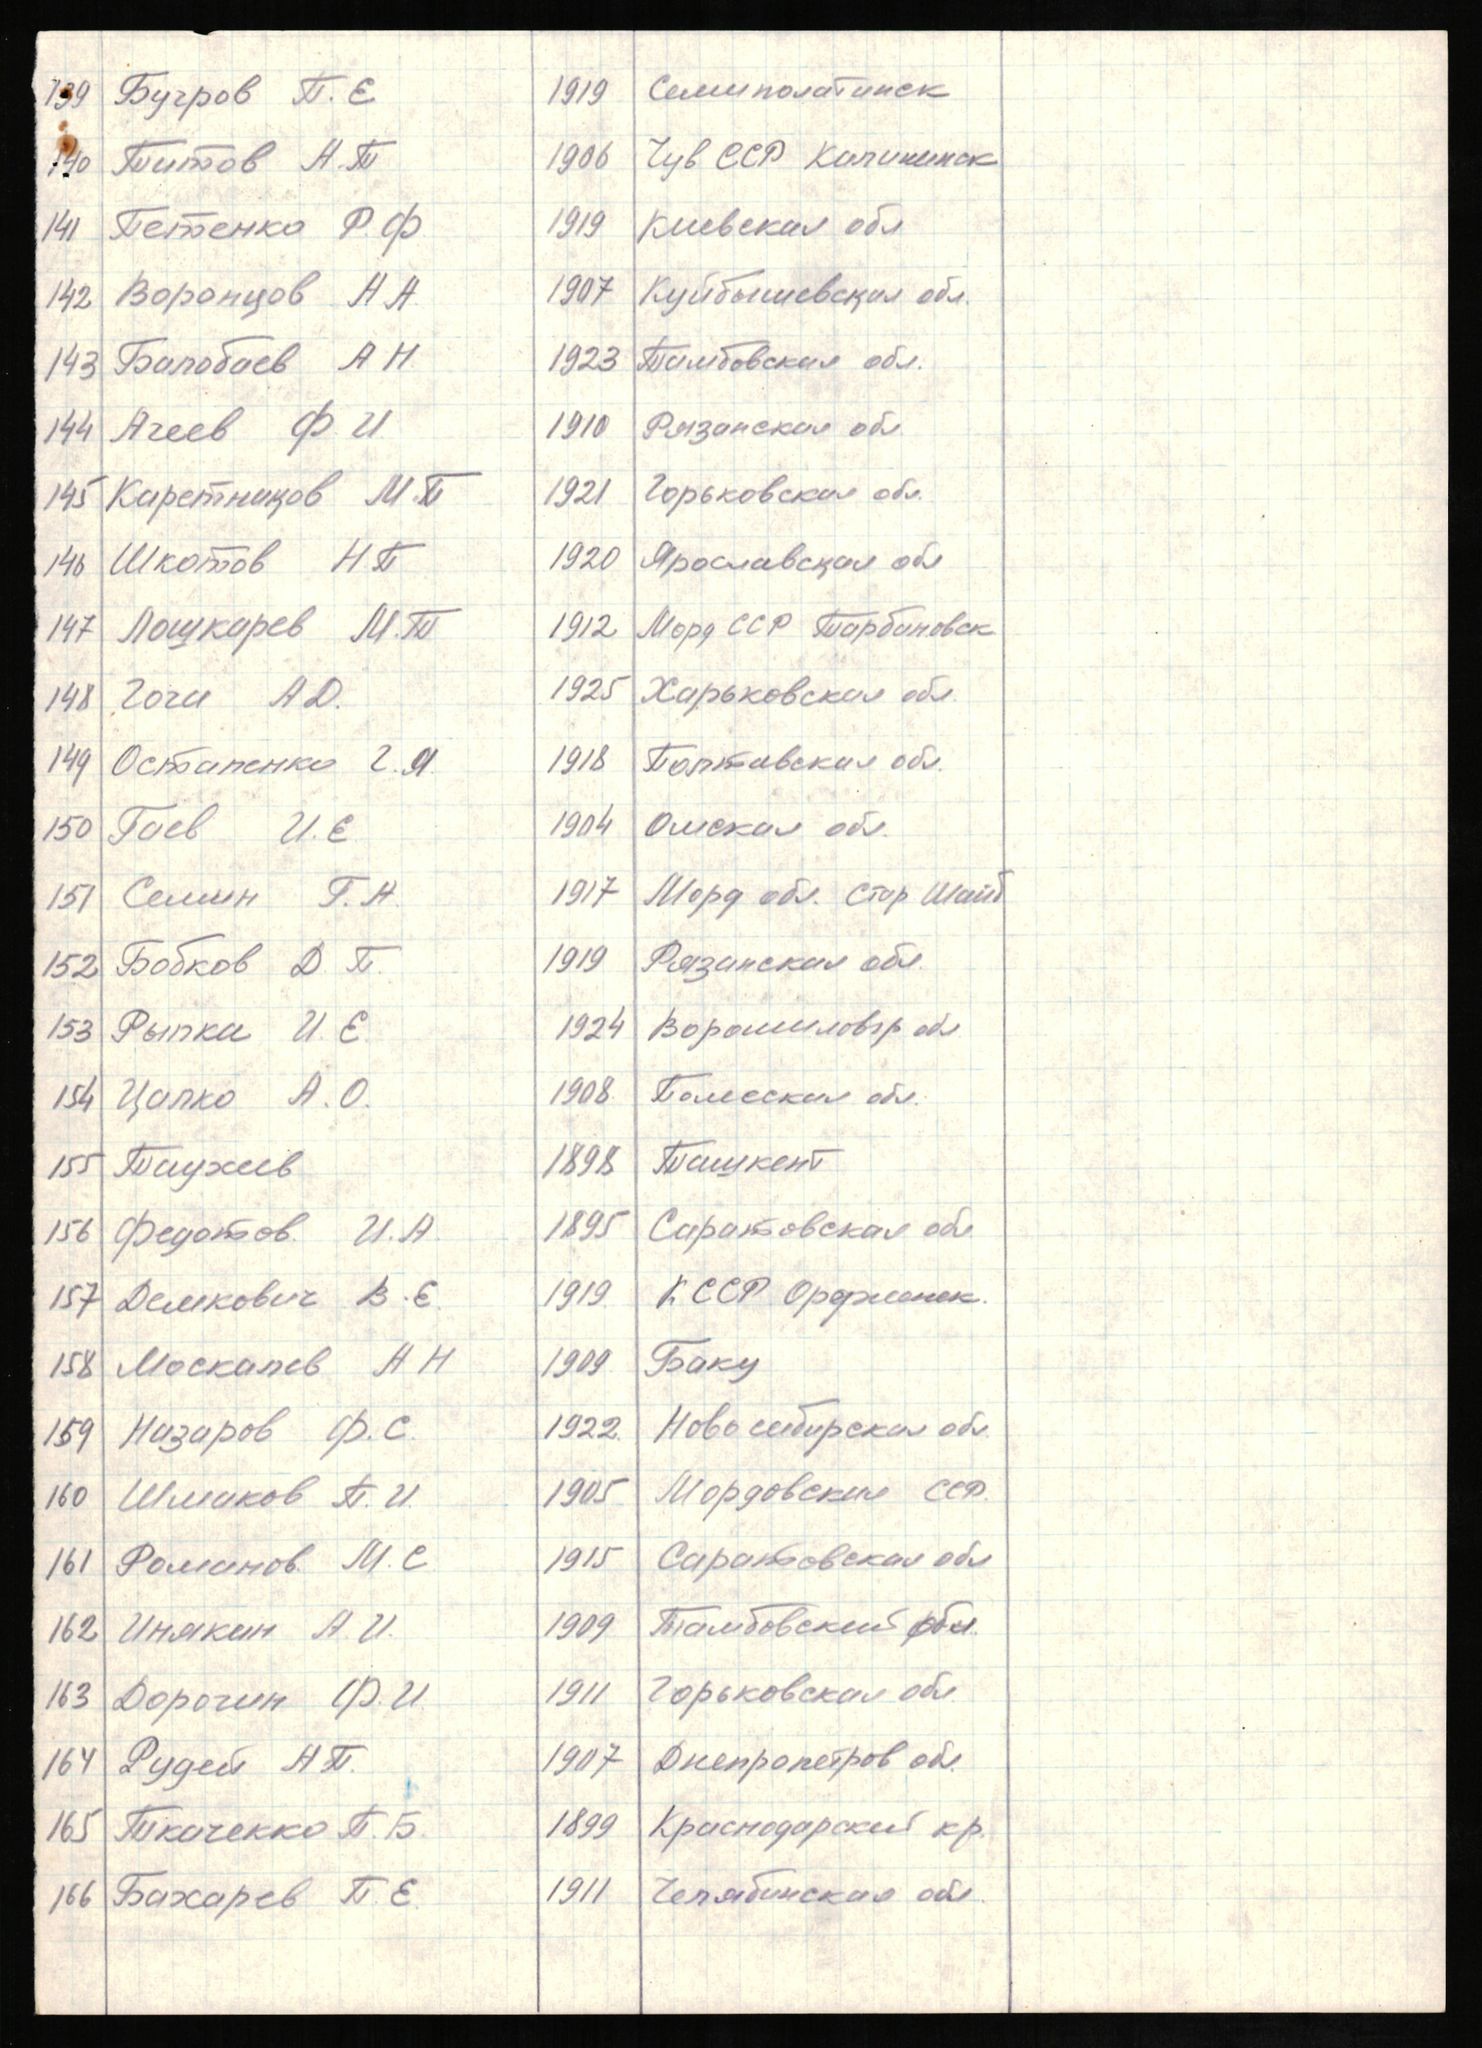 139 Бугров П. Е 1919 Семиполатинск
140 Титов Н. П 1906 Чув ССР Калининск
141 Петенко Р. Ф 1919 Киевская обл
142 Воронцов Н А 1907 Куйбышевская обл.
143 Балобаев А Н 1923 Тамбовская обл.
144 Агеев Ф. И 1910 Рязанская обл.
145 Каретников М. П 1921 Горьковская обл.
146 Шкотов Н П 1920 Ярославская обл
147 Лошкарев М. Т 1912 Морд ССР Тарбановск
148 Гога А Д. 1925 Харьковская обл.
149 Остапенко Г. Я. 1918 Полтавская обл.
150 Гаев И. Е 1904 Омская обл.
151 Семин Г. А. 1917 Морд обл. Стар Шайг
152 Бобков Д П. 1919 Рязанская обл.
153 Рыпка И. Е. 1924 Ворошиловгр обл
154 Цапко А. О. 1908 Полесская обл.
155 Таужев 1898 Ташкент
156 Федотов И. А. 1895 Саратовская обл
157 Демкович В. Е. 1919 К ССР Орджоник.
158 Москалев Н Н 1909 Баку
159 Назаров Ф. С. 1922 Новосибирская обл.
160 Шмаков П. И. 1905 Мордовская ССР.
161 Романов М. С 1915 Саратовская обл
162 Инякин А. И. 1909 Тамбовский обл.
163 Дорогин Ф. И. 1911 Горьковская обл.
164 Рудей Н П. 1907 Днепропетров обл.
165 Ткаченко П. Б. 1899 Краснодарский кр.
166 Бахарев П. Е. 1911 Челябинская обл.